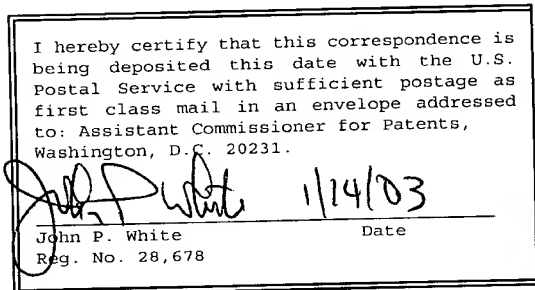 I hereby certify that this correspondence is
being deposited this date with the U.S.
Postal Service with sufficient postage as
first class mail in an envelope addressed
to: Assistant Commissioner for Patents,
Washington, D.C. 20231.
John P White 1/14/03
John P. White Date
Reg. No. 28,678